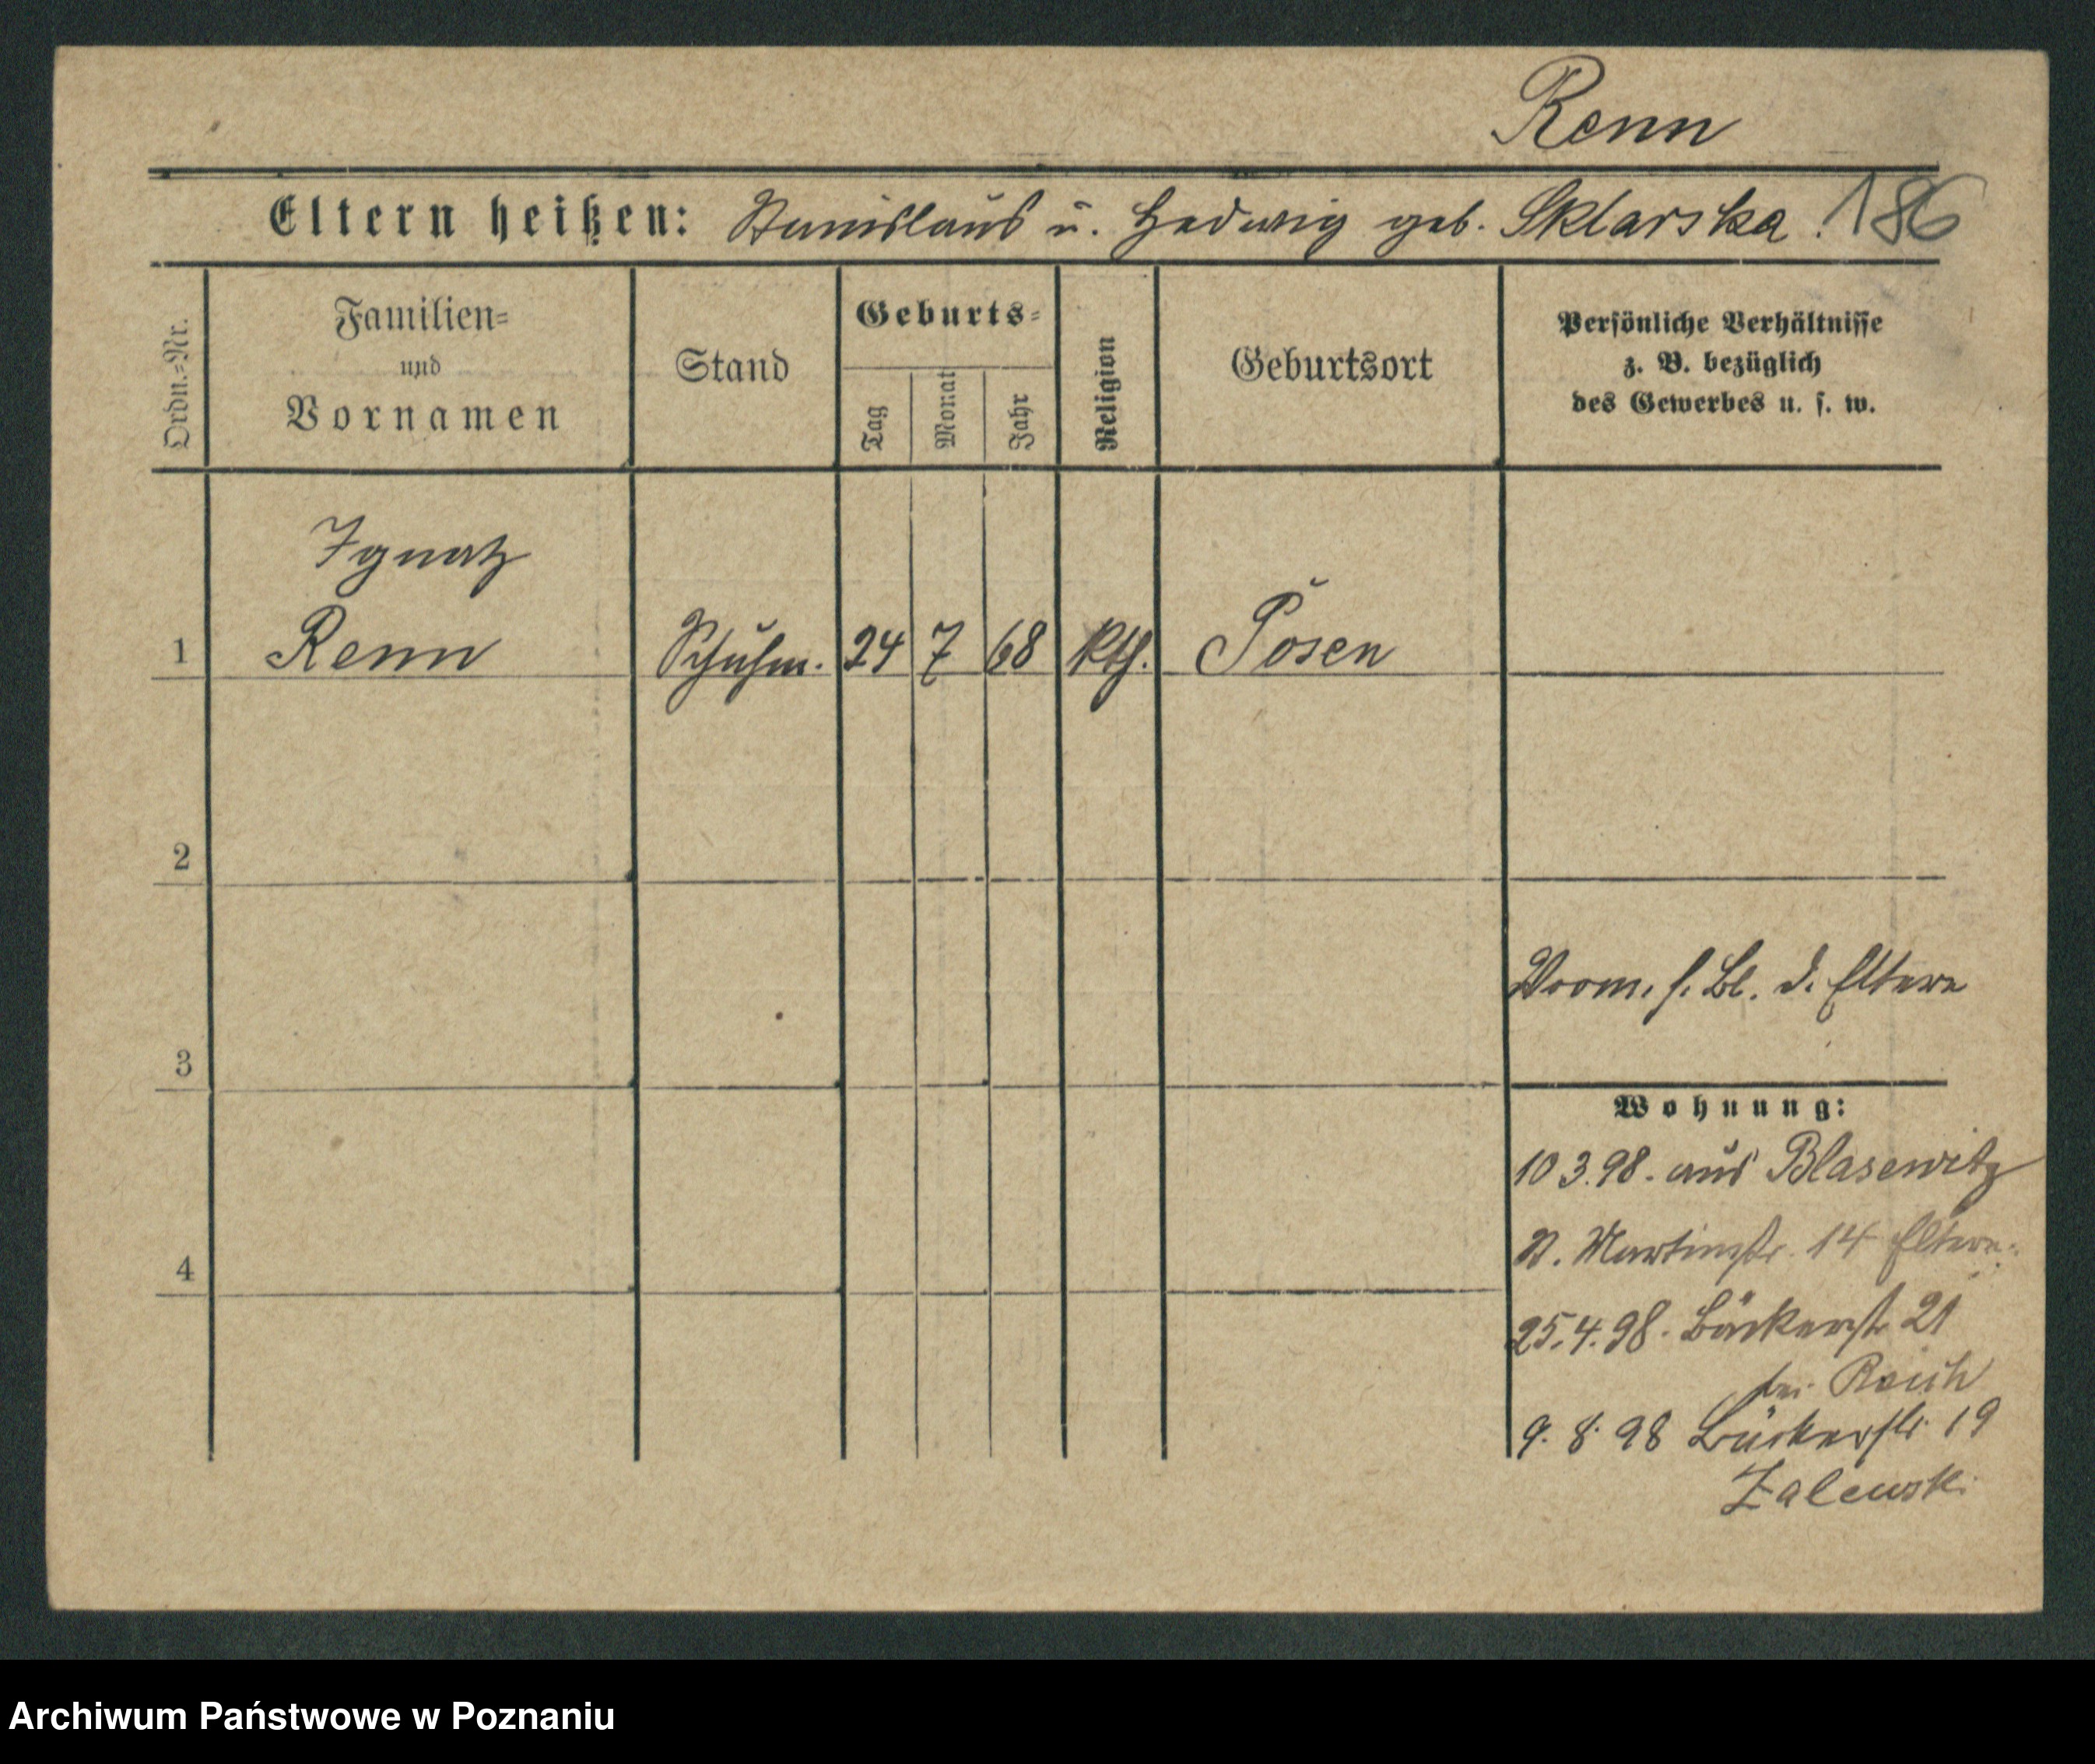 Renn
Eltern heißen: Stanislaus u. Hedwig geb. Sklarska. 186
Ordn.=Nr.
Familien=
und
Vornamen
Stand
Geburts=
Tag
Monat
Jahr
Religion
Geburtsort
Persönliche Verhältnisse
z. B. bezüglich
des Gewerbes u. s. w.
Ignatz
1 Renn Schuhm. 24 7 68 kth. Posen
2
Vorm. s. Bl. d. Eltern
3
Wohnung:
10 3.98. aus Blasewitz
St. Martinstr. 14 Eltern.
4
25.4.98. Bäckerstr 21
bei
9. 8. 98 Bäckerstr. 19
Zalewski
Archiwum Państwowe w Poznaniu